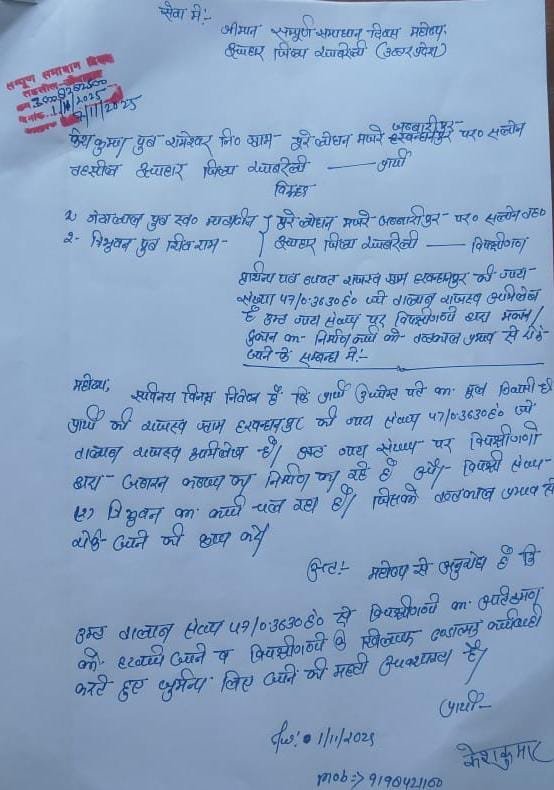 सेवा में:-
श्रीमान सम्पूर्ण समाधान दिवस महोदय,
जिला रायबरेली (उत्तर प्रदेश)
सम्पूर्ण समाधान दिवस
तहसील
30008251500
1/11/2025
1/11/2025
पुत्र रामेश्वर नि० ग्राम- पूरे लोधन मजरे जब्बारीपुर- हरवन्धनपुर पर० सलोन
तहसील जिला रायबरेली — प्रार्थी
बनाम
1. पुत्र स्व० पूरे लोधन मजरे जब्बारीपुर- पर० सलोन तह०
2- त्रिभुवन पुत्र शिव राम- जिला रायबरेली — विपक्षीगण
प्रार्थना पत्र बाबत राजस्व ग्राम हरवन्धनपुर की गाटा
संख्या 57/0.363हे० जो तालाब राजस्व अभिलेख
है उक्त गाटा संख्या पर विपक्षीगणों द्वारा मकान/
दुकान का- निर्माण कार्य को- तत्काल प्रभाव से रोके-
जाने के सम्बन्ध में:-
महोदय,
सविनय विनम्र निवेदन है कि प्रार्थी उपरोक्त पते का मूल निवासी है
प्रार्थी की राजस्व ग्राम हरवन्धनपुर की गाटा संख्या 57/0.363हे० जो
तालाब राजस्व अभिलेख है। उक्त गाटा संख्या पर विपक्षीगणों
द्वारा- जबरन कब्जा का निर्माण कर रहे है और- विपक्षी संख्या-
(2) त्रिभुवन का कार्य चल रहा है। जिसको तत्काल प्रभाव से
रोके- जाने की कृपा करें।
अतः- महोदय से अनुरोध है कि
उक्त तालाब संख्या 57/0.363हे० से विपक्षीगणों का अतिक्रमण
को- हटवाये जाने व विपक्षीगणों के खिलाफ कार्यवाही
करते हुए जुर्माना लिए जाने की महती आवश्यकता है।
प्रार्थी-
1/11/2025
केशकुमार
mob:-> 9198421160